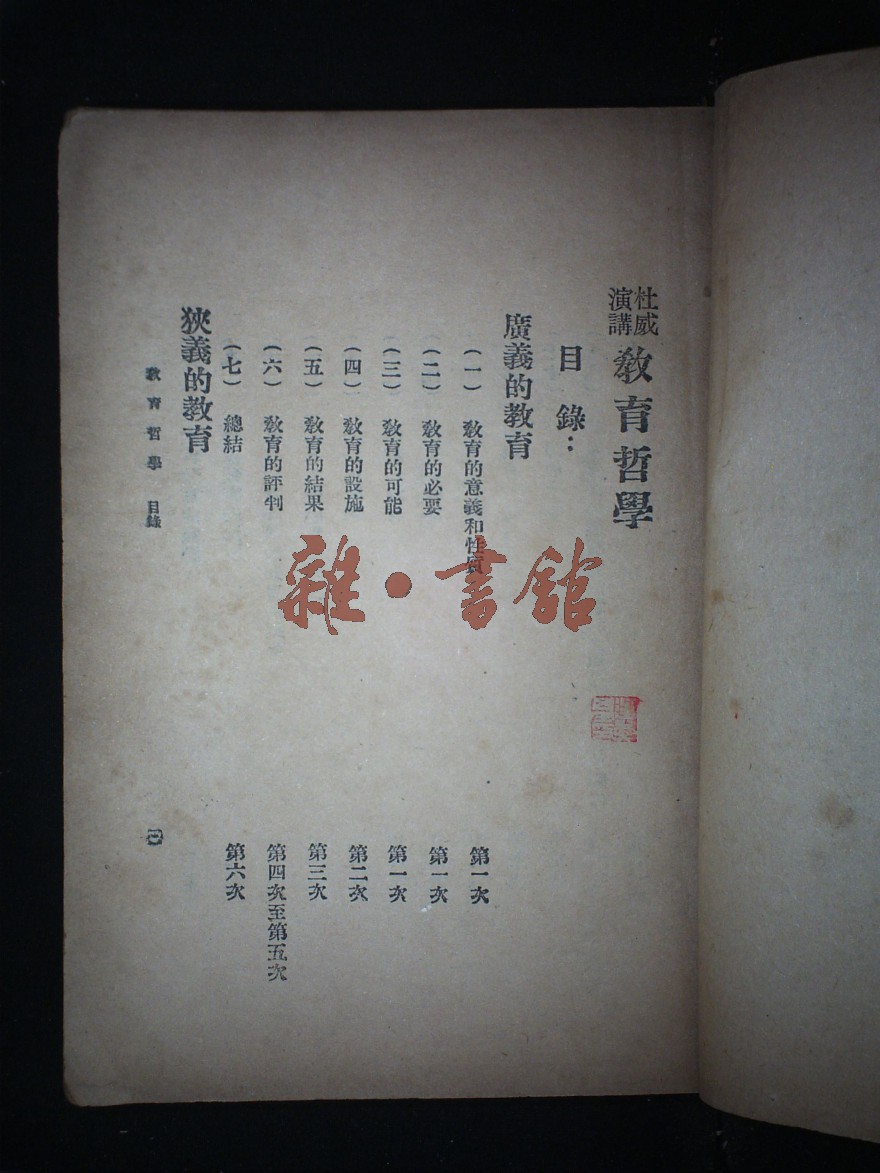 杜威演講 教育哲學
目錄：
廣義的教育
（一） 教育的意義和性質 第一次
（二） 教育的必要 第一次
（三） 教育的可能 第一次
（四） 教育的設施 第二次
（五） 教育的結果 第三次
（六） 教育的評判 第四次至第五次
（七） 總結 第六次
狹義的教育
教育哲學 目錄
雜·書館